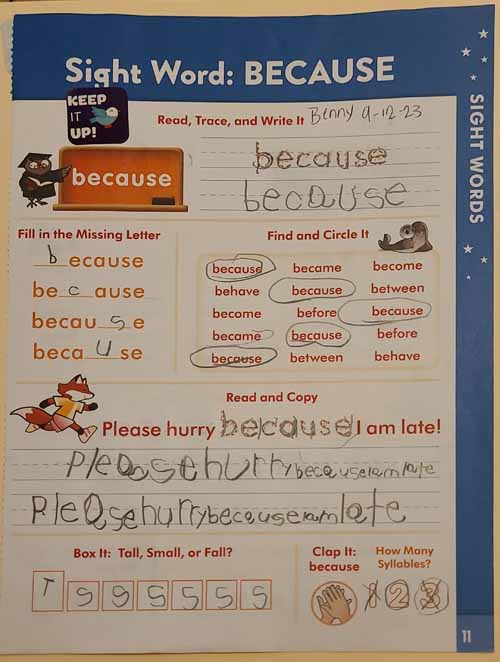 Sight Word: BECAUSE
KEEP
IT
UP!
Read, Trace, and Write It Benny 9-12-23
because
because
because
SIGHT WORDS
Fill in the Missing Letter
because
because
because
because
Find and Circle It
because became become
behave because between
become before because
became because before
because between behave
Read and Copy
Please hurry because I am late!
PleasehurrybecauseIamlate
PleasehurrybecauseIamlate
Box It: Tall, Small, or Fall?
T S S S S S S
Clap It:
because
How Many
Syllables?
1 2 3
11